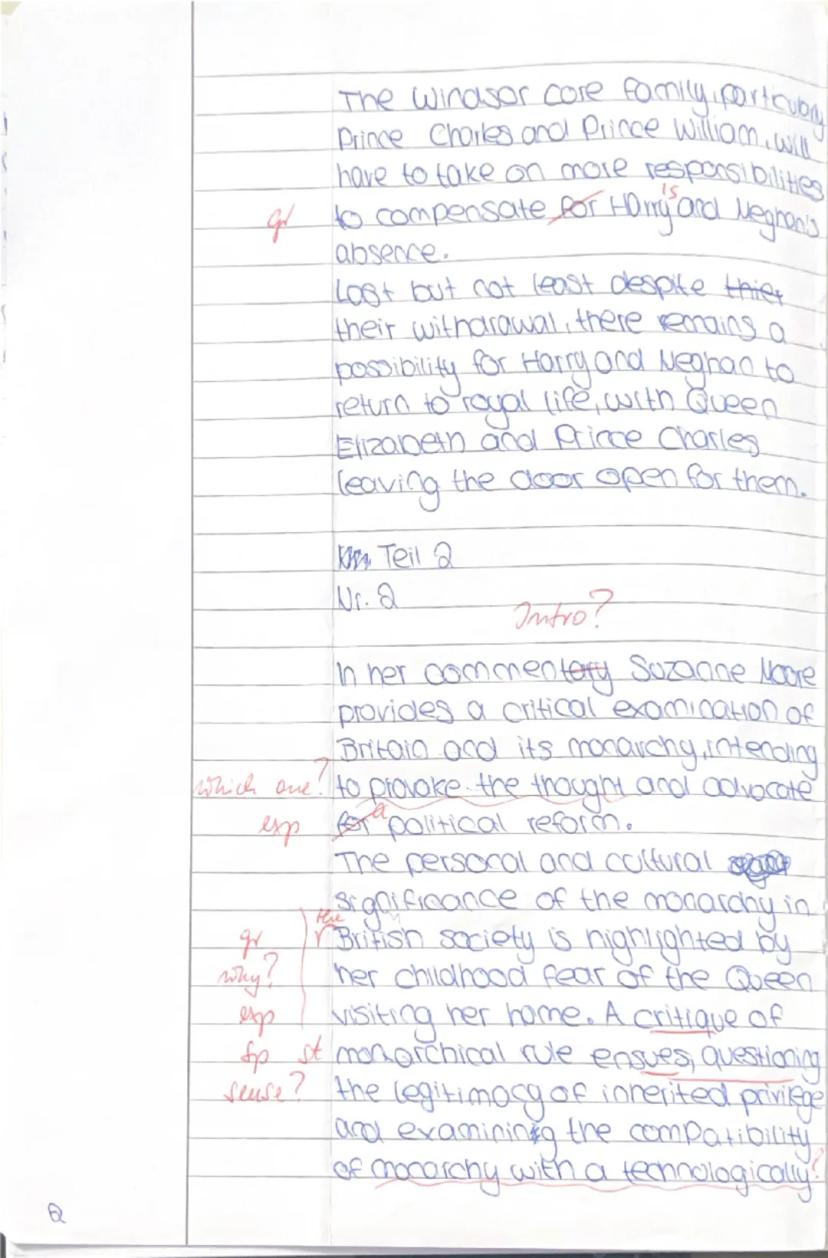 The Windsor core family, particulary
Prince Charles and Prince William, will
have to take on more responsibilities
is
gr to compensate for Harry and Meghan's
absence.
Last but not least despite thier
their withdrawal, there remains a
possibility for Harry and Meghan to
return to royal life, with Queen
Elizabeth and Prince Charles
leaving the door open for them.
Teil 2
Nr. 2
Intro?
In her commentary Suzanne Moore
provides a critical examination of
Britain and its monarchy, intending
which one? to provoke the thought and advocate
esp for a political reform.
The personal and cultural
significance of the monarchy in
the
gr British society is highlighted by
why? her childhood fear of the Queen
esp visiting her home. A critique of
sp st monarchical rule ensues, questioning
sense? the legitimacy of inherited privilege
and examining the compatibility
of monarchy with a technologically ?
2